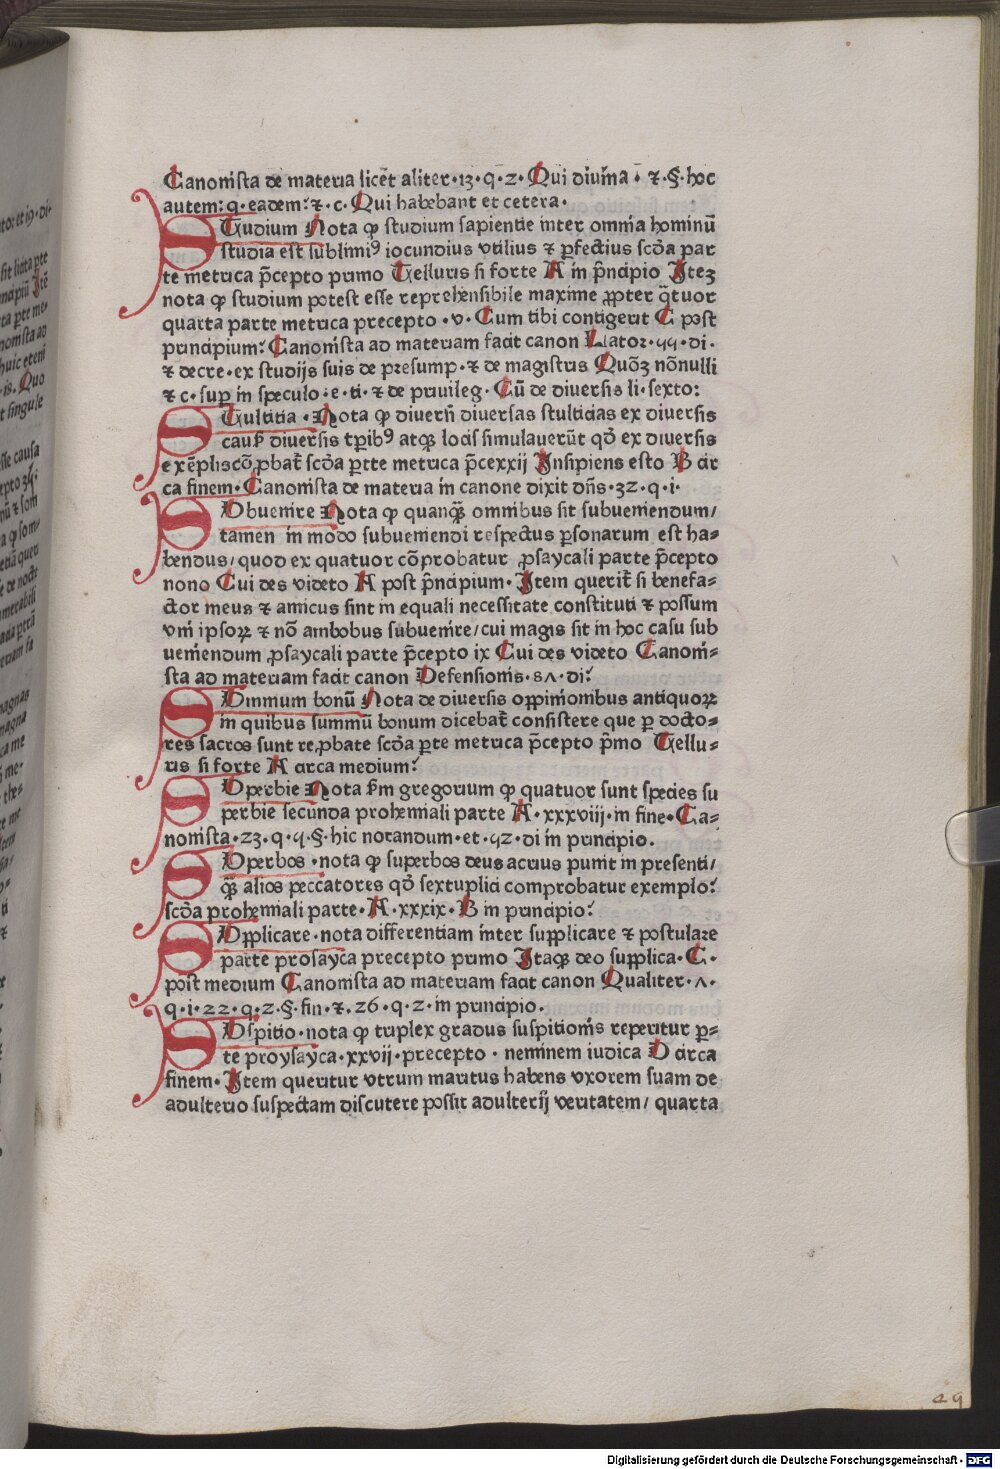 Canonista de materia licet̄ aliter·13·q̄·2·Qui diuīna·⁊·§·hoc
autem: q·eadem:⁊·c·Qui habebant et cetera·
STudium Nota ꝙ studium sapientie inter omnia hominū
studia est sublimi⁹ iocundius vtilius ⁊ ꝑfectius scd̄a par
te metrica p̄cepto primo Telluris si forte A in p̄ncipio Itez
nota ꝙ studium potest esse reprehensibile maxime ꝓpter q̄tuor
quarta parte metrica precepto·v·Cum tibi contigerit C post
principium: Canonista ad materiam facit canon Lator·qq·di·
⁊ decre·ex studijs suis de presump·⁊ de magistris Quōꝫ nōnulli
⁊ c·suꝑ in speculo:e·ti·⁊ de priuileg·Cū de diuersis li·sexto:
STultitia·Nota ꝙ diuersi diuersas stulticias ex diuersis
causꝭ diuersis tp̄ib⁹ atqꝫ locis simulauerūt qd̄ ex diuersis
exēplis cōꝓbat̄ scd̄a ꝑte metrica p̄ce xxij Insipiens esto B cir
ca finem·Canonista de materia in canone dixit dn̄s·32·q·i·
SVbuenire Nota ꝙ quanqꝫ omnibus sit subueniendum/
tamen in modo subueniendi respectus ꝑsonarum est ha⸗
bendus/quod ex quatuor cōprobatur ꝓsaycali parte p̄cepto
nono Cui des videto A post p̄ncipium·Item querit̄ si benefa⸗
ctor meus ⁊ amicus sint in equali necessitate constituti ⁊ possum
vni ipsoꝝ ⁊ nō ambobus subuenire/cui magis sit in hoc casu sub
ueniendum ꝓsaycali parte p̄cepto ix Cui des videto Canoni⸗
sta ad materiam facit canon Defensionis·8ʌ·di:
SVmmum bonū Nota de diuersis oppinionibus antiquoꝝ
in quibus summū bonum dicebat̄ consistere que ꝑ docto⸗
res sacros sunt reꝓbate scd̄a ꝑte metrica p̄cepto p̄mo Tellu⸗
ris si forte A circa medium:
SVperbie Nota ẜm gregorium ꝙ quatuor sunt species su
perbie secunda prohemiali parte A·xxxviij·in fine·Ca⸗
nonista·23·q·q·§·hic notandum·et·q2·di in principio.
SVperbos·nota ꝙ superbos deus acrius punit in presenti/
qꝫ alios peccatores qd̄ sextuplici comprobatur exemplo:
scd̄a prohemiali parte·A·xxxix·B in principio:
SVpplicare·nota differentiam inter supplicare ⁊ postulare
parte prosayca precepto primo Itaqꝫ deo supplica·C·
post medium Canonista ad materiam facit canon Qualiter·ʌ·
q·i·22·q·2·§·fin·⁊·26·q·2·in principio.
SVspitio·nota ꝙ triplex gradus suspitionis reperitur ꝑ⸗
te proysayca·xxvij·precepto·neminem iudica D circa
finem·Item queritur vtrum maritus habens vxorem suam de
adulterio suspectam discutere possit adulterij veritatem/ quarta
29
Digitalisierung gefördert durch die Deutsche Forschungsgemeinschaft · DFG